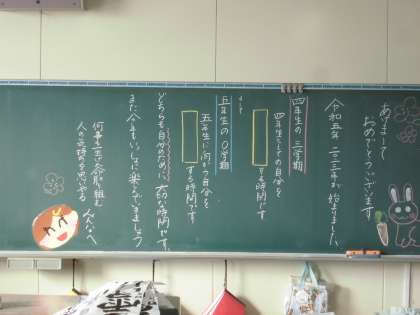 あけまして
おめでとうございます
令和五年 二〇二三年が始りました
四年生の三学期
四年生としての自分を
する時間です
五年生の〇学期
五年生に向かう自分を
する時間です
どちらも自分のために大切な時間です。
また今年もいっしょに楽しんでいきましょう
何事も一生けん命取り組む
人の気持ちを思いやる
みんなへ